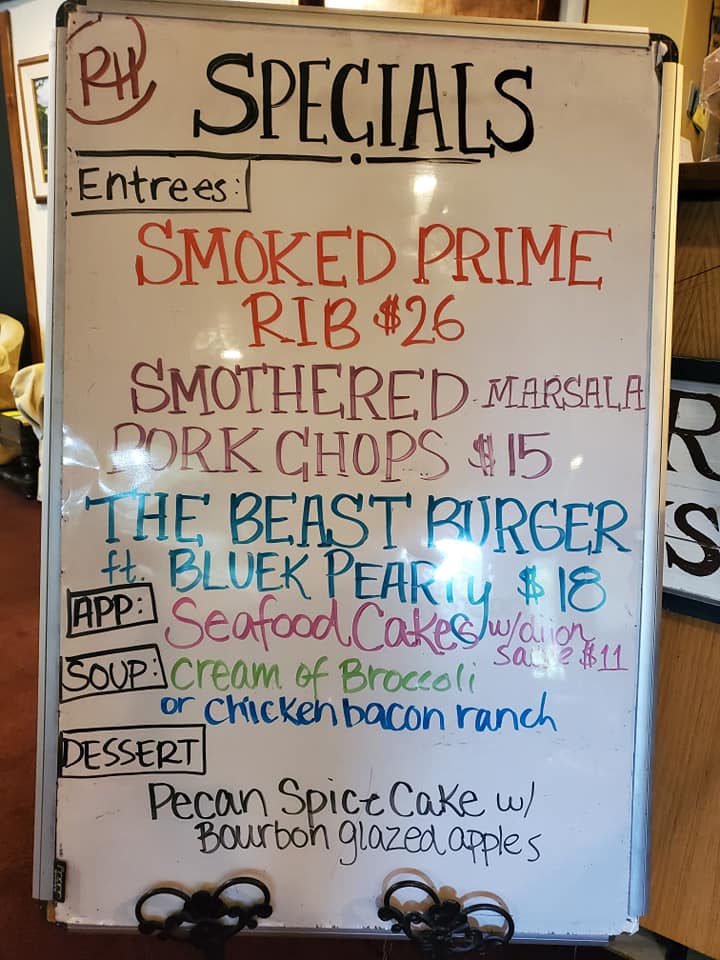 RH
SPECIALS
Entrees:
SMOKED PRIME
RIB $26
SMOTHERED MARSALA
PORK CHOPS $15
THE BEAST BURGER
ft. BLUEK PEARTY $18
APP: Seafood Cakes w/dijon
sauce $11
SOUP: Cream of Broccoli
or chicken bacon ranch
DESSERT
Pecan Spice Cake w/
Bourbon glazed apples
R
S